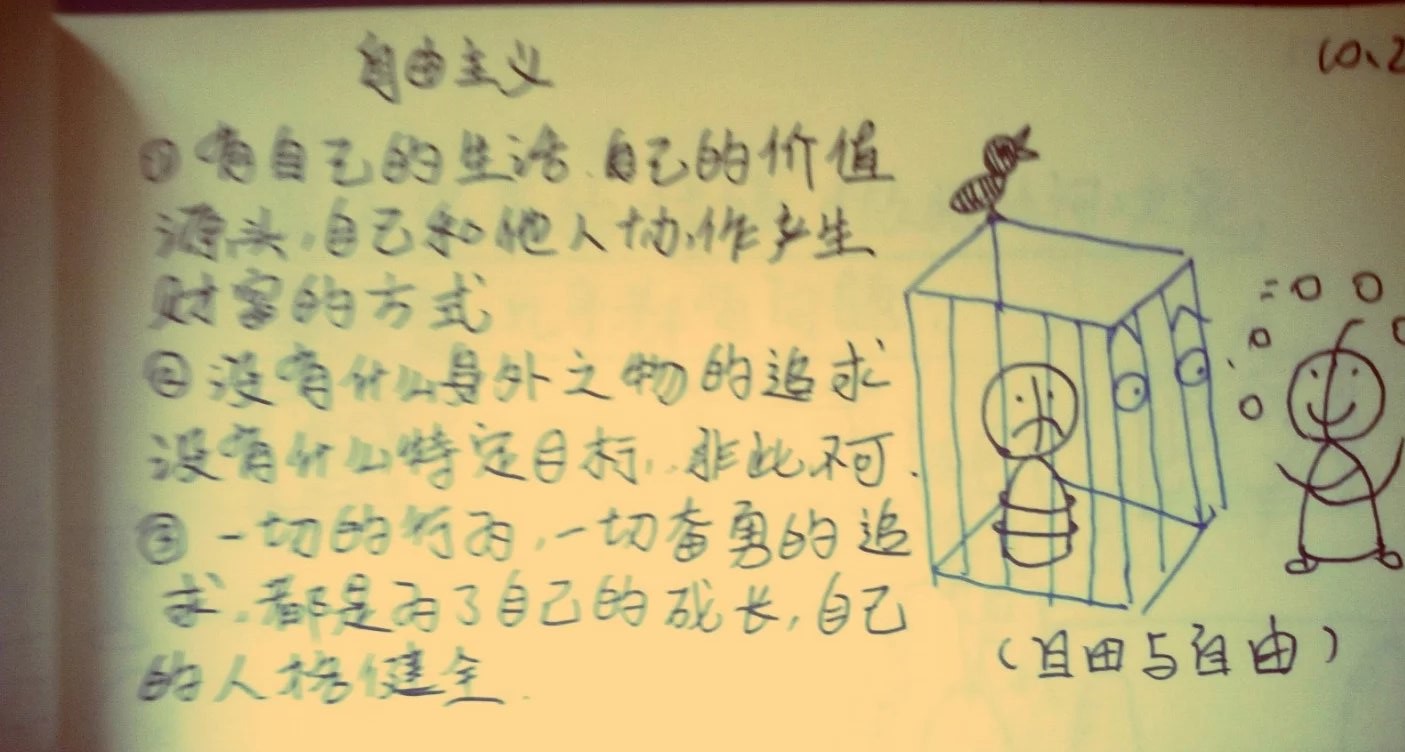 自由主义
10、2
① 有自己的生活、自己的价值
源头，自己和他人协作产生
财富的方式
② 没有什么身外之物的追求
没有什么特定目标，非此不可.
③ 一切的行为，一切奋勇的追
求，都是为了自己的成长，自己
的人格健全.
（自由与自由）